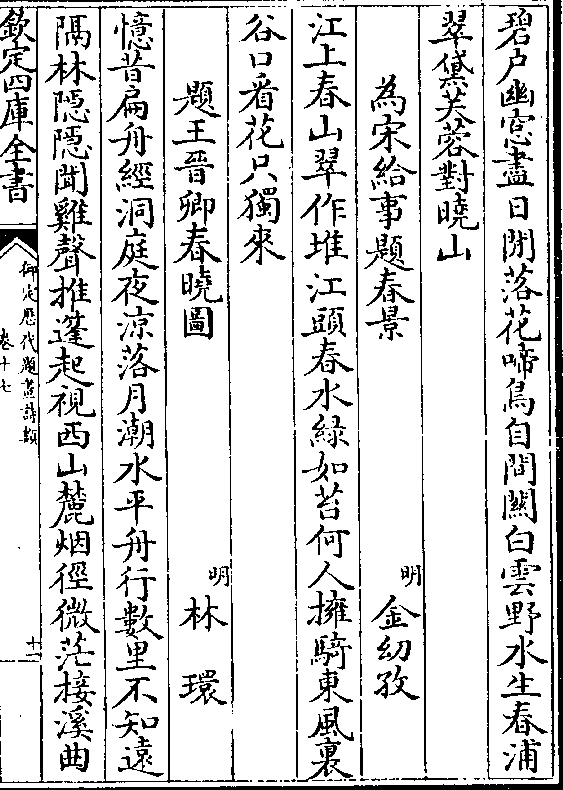 碧戶幽窓盡日閉落花啼鳥自間闗白雲野水生春浦
翠黛芙蓉對曉山
為宋給事題春景
明
金幼孜
江上春山翠作堆江頭春水緑如苔何人擁騎東風裏
谷口看花只獨來
題王晉卿春曉圖
明
林環
憶昔扁舟經洞庭夜凉落月潮水平舟行數里不知遠
隔林隠隠聞雞聲推蓬起視西山麓烟徑微茫接溪曲
欽定四庫全書
御定歴代題畫詩類
卷十七
十一